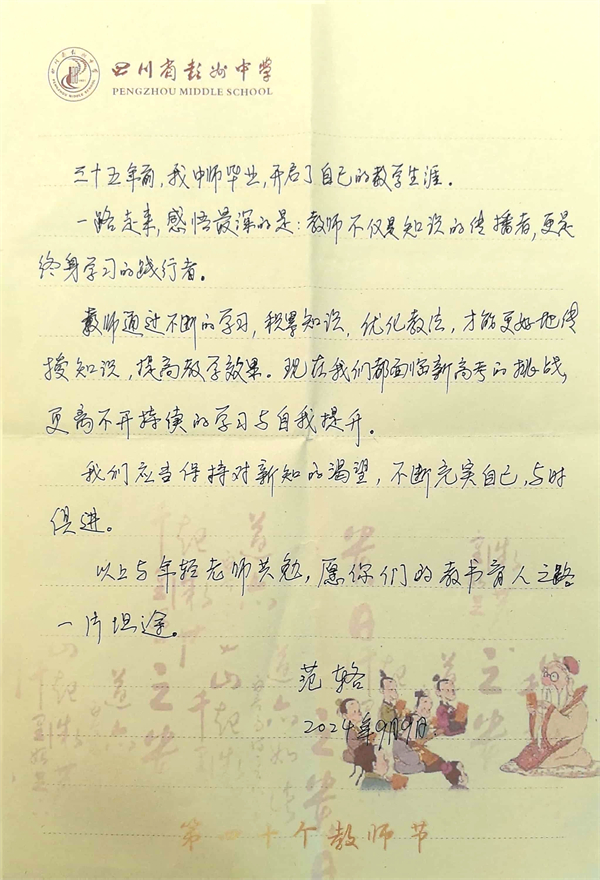 四川省彭州中学
PENGZHOU MIDDLE SCHOOL
三十五年前,我中师毕业,开启了自己的教学生涯。
一路走来,感悟最深的是:教师不仅是知识的传播者,更是
终身学习的践行者。
教师通过不断的学习,积累知识,优化教法,才能更好地传
授知识,提高教学效果。现在我们都面临新高考的挑战,
更离不开持续的学习与自我提升。
我们应当保持对新知的渴望,不断充实自己,与时
俱进。
以上与年轻老师共勉,愿你们的教书育人之路
一片坦途。
范
2024年9月9日
第四十个教师节